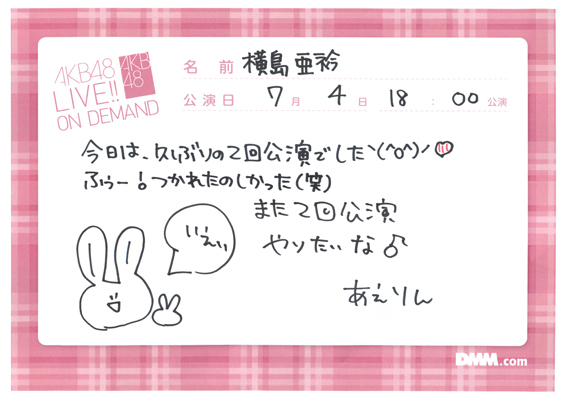 AKB48
LIVE!!
ON DEMAND
AKB
48
名前 横島亜衿
公演日 7月 4日 18:00公演
今日は、久しぶりの2回公演でした\(^o^)/
ふぅー!つかれたのしかった(笑)
また2回公演
やりたいな♪
いえい
あえりん
DMM.com